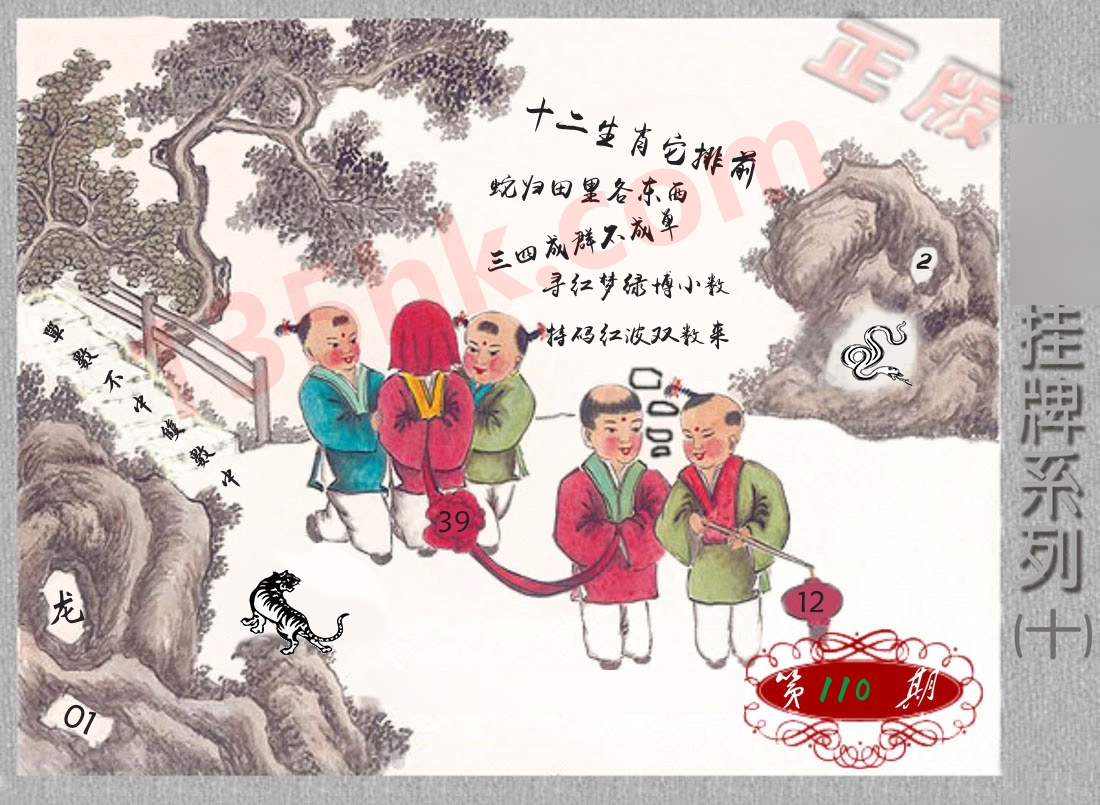 正版
十二生肖它排前
蛇归田里各东西
三四成群不成单
寻红梦绿博小数
特码红波双数来
135nk.com
2
挂牌系列(十)
單數不中雙數中
39
12
龙
01
第110期